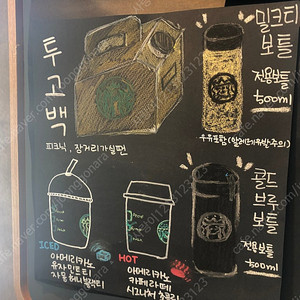 투고백
피크닉, 장거리가실땐
밀크티
보틀
전용보틀
500ml
우유포함(알레르기유발주의)
콜드
브루
보틀
전용보틀
500ml
ICED
아메리카노
유자민트티
자몽허니블랙티
HOT
아메리카노
카페라떼
시그니처 초콜릿